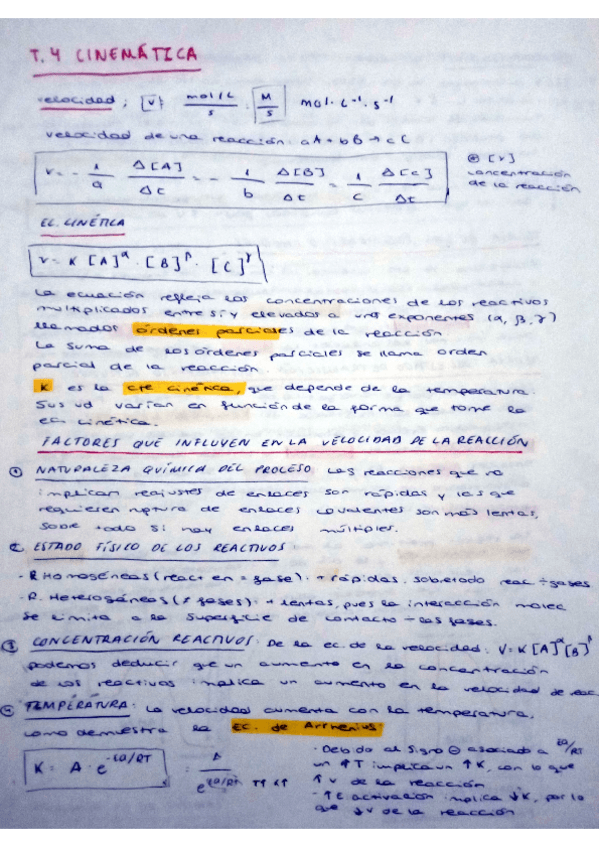 T.4 CINEMÁTICA
velocidad; [v] mol/L / s . M/s mol·L⁻¹·s⁻¹
velocidad de una reacción: aA + bB → cC
v = - 1/a Δ[A]/Δt = - 1/b Δ[B]/Δt = 1/c Δ[C]/Δt
[v] concentración de la reacción
EC. CINÉTICA
v = K [A]^α · [B]^β · [C]^γ
La ecuación refleja las concentraciones de los reactivos
multiplicados entre sí y elevados a unos exponentes (α, β, γ)
llamados órdenes parciales de la reacción
La suma de los órdenes parciales se llama orden
parcial de la reacción.
K es la cte cinética, que depende de la temperatura.
Sus ud varían en función de la forma que tome la
ec. cinética.
FACTORES QUE INFLUYEN EN LA VELOCIDAD DE LA REACCIÓN
① NATURALEZA QUÍMICA DEL PROCESO Las reacciones que no
implican reajustes de enlaces son rápidas y las que
requieren ruptura de enlaces covalentes son más lentas,
sobre todo si hay enlaces múltiples.
② ESTADO FÍSICO DE LOS REACTIVOS:
- R Homogéneas (react en = fase): + rápidas, sobretodo reac ÷ gases
- R. Heterogéneas (≠ fases): + lentas, pues la interacción molec
se limita a la superficie de contacto ÷ las fases.
③ CONCENTRACIÓN REACTIVOS: De la ec. de la velocidad: V = K [A]^α [B]^β
podemos deducir que un aumento en la concentración
de los reactivos implica un aumento en la velocidad de reac
④ TEMPERATURA: La velocidad aumenta con la temperatura,
como demuestra la Ec. de Arrhenius:
K = A · e^-Ea/RT = A / e^Ea/RT T↑ K↑
· Debido al signo ⊖ asociado a Ea/RT
un ↑T implica un ↑K, con lo que
↑v de la reacción
· ↑E activación implica ↓K, por lo
que ↓v de la reacción